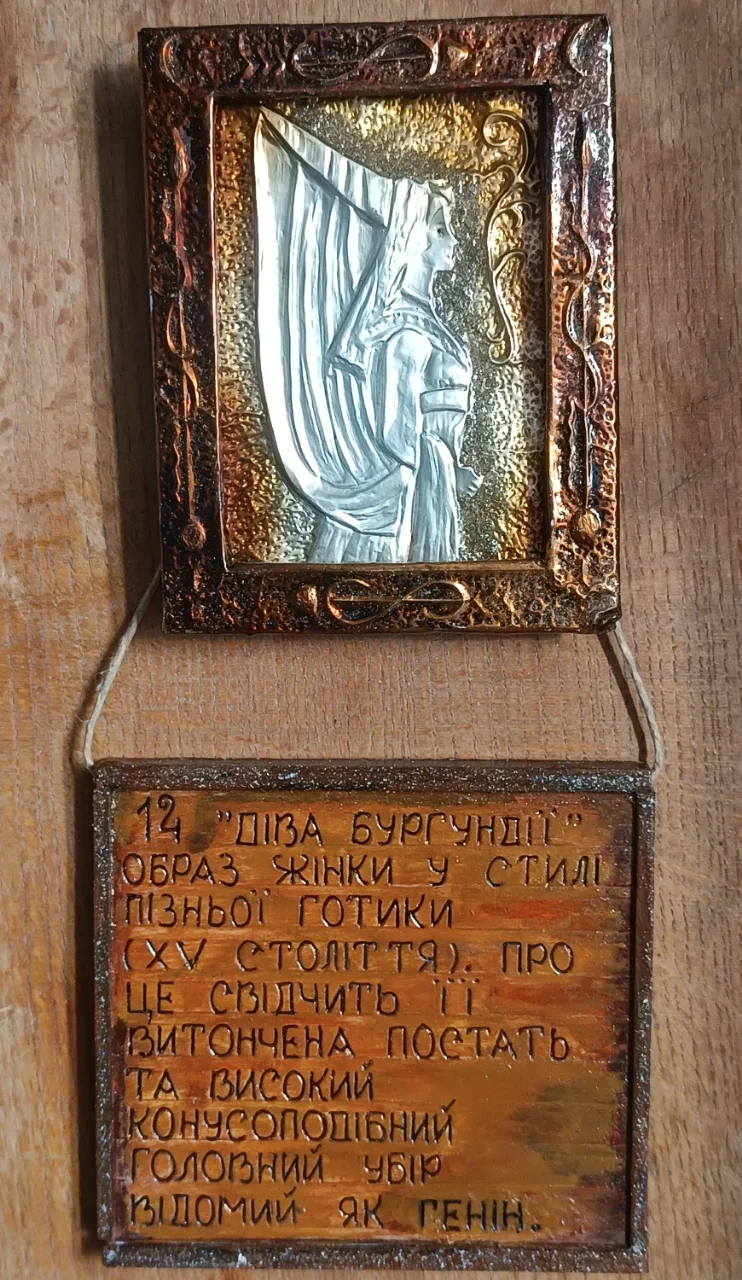 12 "ДІВА БУРГУНДІЇ"
ОБРАЗ ЖІНКИ У СТИЛІ
ПІЗНЬОЇ ГОТИКИ
(XV СТОЛІТТЯ). ПРО
ЦЕ СВІДЧИТЬ ЇЇ
ВИТОНЧЕНА ПОСТАТЬ
ТА ВИСОКИЙ
КОНУСОПОДІБНИЙ
ГОЛОВНИЙ УБІР
ВІДОМИЙ ЯК ГЕНІН.